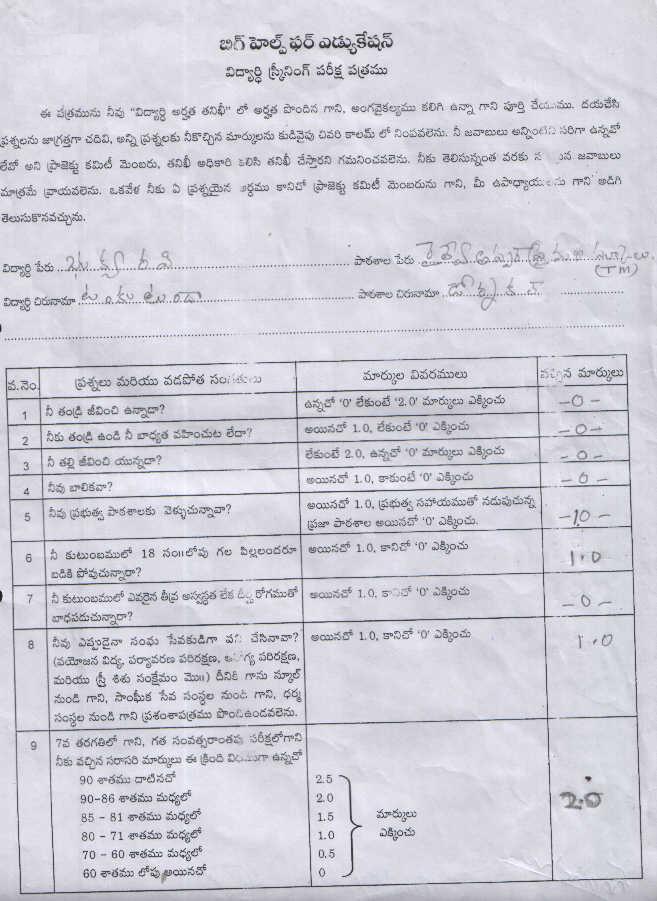 బిగ్ హెల్ప్ ఫర్ ఎడ్యుకేషన్
విద్యార్ధి స్క్రీనింగ్ పరీక్ష పత్రము
ఈ పత్రమును నీవు "విద్యార్ధి అర్హత తనిఖీ" లో అర్హత పొందిన గాని, అంగవైకల్యము కలిగి ఉన్నా గాని పూర్తి చేయుము. దయచేసి
ప్రశ్నలను జాగ్రత్తగా చదివి, అన్ని ప్రశ్నలకు నీకొచ్చిన మార్కులను కుడివైపు చివరి కాలమ్ లో నింపవలెను. నీ జవాబులు అన్నింటిని సరిగా ఉన్నవో
లేవో అని ప్రాజెక్టు కమిటీ మెంబరు, తనిఖీ అధికారి కలిసి తనిఖీ చేస్తారని గమనించవలెను. నీకు తెలిసున్నంత వరకు జవాబులు
మాత్రమే వ్రాయవలెను. ఒకవేళ నీకు ఏ ప్రశ్నయైన అర్థము కానిచో ప్రాజెక్టు కమిటీ మెంబరును గాని, మీ ఉపాధ్యాయులను గాని అడిగి
తెలుసుకొనవచ్చును.
విద్యార్థి పేరు పాఠశాల పేరు
(TM)
విద్యార్థి చిరునామా పాఠశాల చిరునామా
వ.నెం. ప్రశ్నలు మరియు వడపోత సంగతులు మార్కుల వివరములు వచ్చిన మార్కులు
1 నీ తండ్రి జీవించి ఉన్నాడా? ఉన్నచో '0' లేకుంటే '2.0' మార్కులు ఎక్కించు –0–
2 నీకు తండ్రి ఉండి నీ బాధ్యత వహించుట లేదా? అయినచో 1.0, లేకుంటే '0' ఎక్కించు –0–
3 నీ తల్లి జీవించి యున్నదా? లేకుంటే 2.0, ఉన్నచో '0' మార్కులు ఎక్కించు –0–
4 నీవు బాలికవా? అయినచో 1.0, కాకుంటే '0' ఎక్కించు –0–
5 నీవు ప్రభుత్వ పాఠశాలకు వెళ్ళుచున్నావా? అయినచో 1.0, ప్రభుత్వ సహాయముతో నడుపుచున్న –10–
ప్రజా పాఠశాల అయినచో '0' ఎక్కించు.
6 నీ కుటుంబములో 18 సం॥లోపు గల పిల్లలందరూ అయినచో 1.0, కానిచో '0' ఎక్కించు 1.0
బడికి పోవుచున్నారా?
7 నీ కుటుంబములో ఎవరైన తీవ్ర అస్వస్థత లేక దీర్ఘ రోగముతో అయినచో 1.0, కానిచో '0' ఎక్కించు –0–
బాధపడుచున్నారా?
8 నీవు ఎప్పుడైనా సంఘ సేవకుడిగా పని చేసినావా? అయినచో 1.0, కానిచో '0' ఎక్కించు 1.0
(వయోజన విద్య, పర్యావరణ పరిరక్షణ, ఆరోగ్య పరిరక్షణ,
మరియు స్త్రీ శిశు సంక్షేమం మొ॥) దీనికి గాను స్కూల్
నుండి గాని, సాంఘీక సేవ సంస్థల నుండి గాని, ధర్మ
సంస్థల నుండి గాని ప్రశంశాపత్రము పొందిఉండవలెను.
9 7వ తరగతిలో గాని, గత సంవత్సరాంతపు పరీక్షలోగాని
నీకు వచ్చిన సరాసరి మార్కులు ఈ క్రింది విధముగా ఉన్నచో
90 శాతము దాటినచో 2.5
90–86 శాతము మధ్యలో 2.0 2.0
85 – 81 శాతము మధ్యలో 1.5 మార్కులు
80 – 71 శాతము మధ్యలో 1.0 ఎక్కించు
70 – 60 శాతము మధ్యలో 0.5
60 శాతము లోపు అయినచో 0